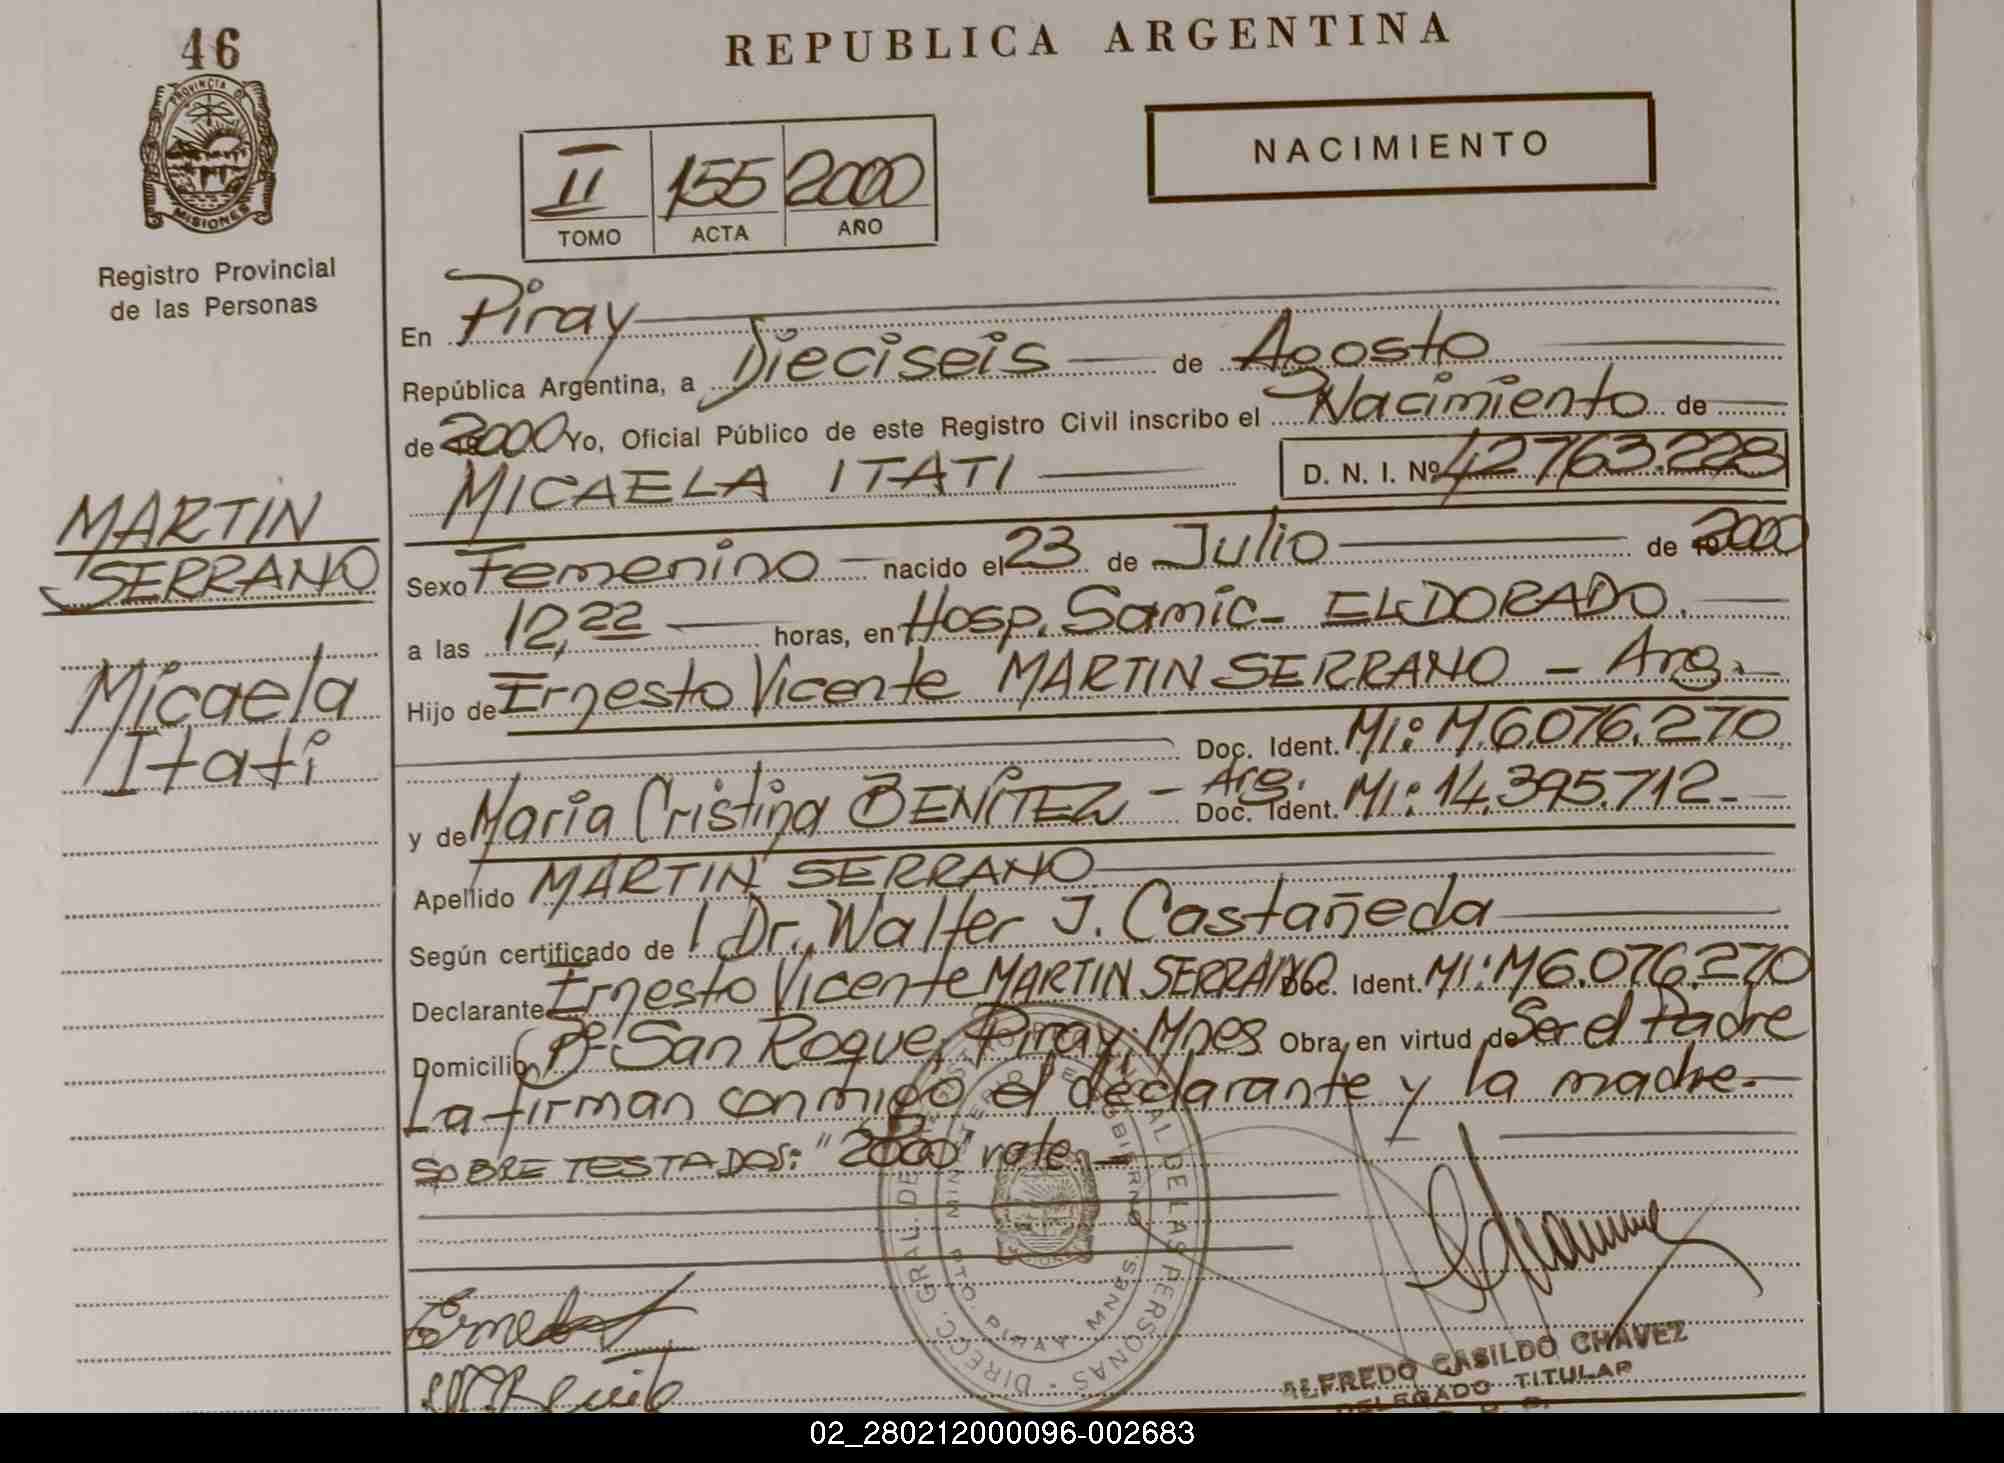 46
REPUBLICA ARGENTINA
PROVINCIA DE
MISIONES
NACIMIENTO
II 155 2000
TOMO ACTA AÑO
Registro Provincial
de las Personas
En Piray
República Argentina, a Dieciseis de Agosto
de 2000 Yo, Oficial Público de este Registro Civil inscribo el Nacimiento de
MICAELA ITATI D. N. I. Nº 42763.228
MARTIN
SERRANO
Micaela
Itati
Sexo Femenino nacido el 23 de Julio de 2000
a las 12,22 horas, en Hosp. Samic - ELDORADO.
Hijo de Ernesto Vicente MARTIN SERRANO - Arg.
Doc. Ident. MI: M.6.076.270
y de Maria Cristina BENITEZ - Arg. Doc. Ident. MI: 14.395.712-
Apellido MARTIN SERRANO
Según certificado de Dr. Walter J. Castañeda
Declarante Ernesto Vicente MARTIN SERRANO Doc. Ident. MI: M6.076.270
Domicilio Bº San Roque, Piray, Mnes Obra en virtud de Ser el Padre
La firman conmigo el declarante y la madre.-
SOBRE TESTADOS: "2000" vale.-
DIRECC. GRAL. DE REGISTRO PROVINCIAL DE LAS PERSONAS
MINISTERIO DE GOBIERNO
PTO. PIRAY MNES.
ALFREDO CASILDO CHAVEZ
DELEGADO TITULAR
02_280212000096-002683